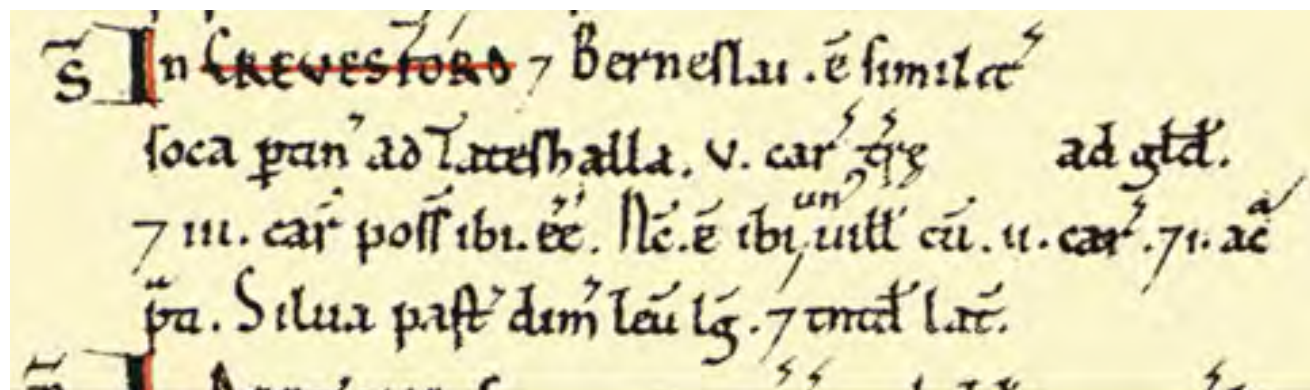 S̄ In CREVESTORD 7 Berneslai . ē similit̄
soca ptin̄ ad Tateshalla. v. car̄ tr̄ę ad gld̄.
7 iii. car̄ poss̄ ibi. ēē. Nc̄. ē ibi un' uill̄s cū. ii. car̄. 7 i. ac̄ a
p̄ti. Silua past̄ dim̄ leū lḡ. 7 tntd̄ lat̄.